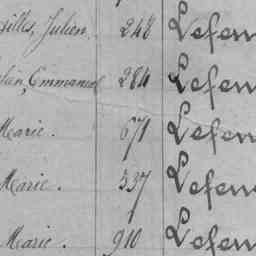 illes, Julien. 248 Lefen
Emmanuel 284 Lefen
Marie. 671 Lefen
Marie. 337 Lefen
Marie. 910 Lefen